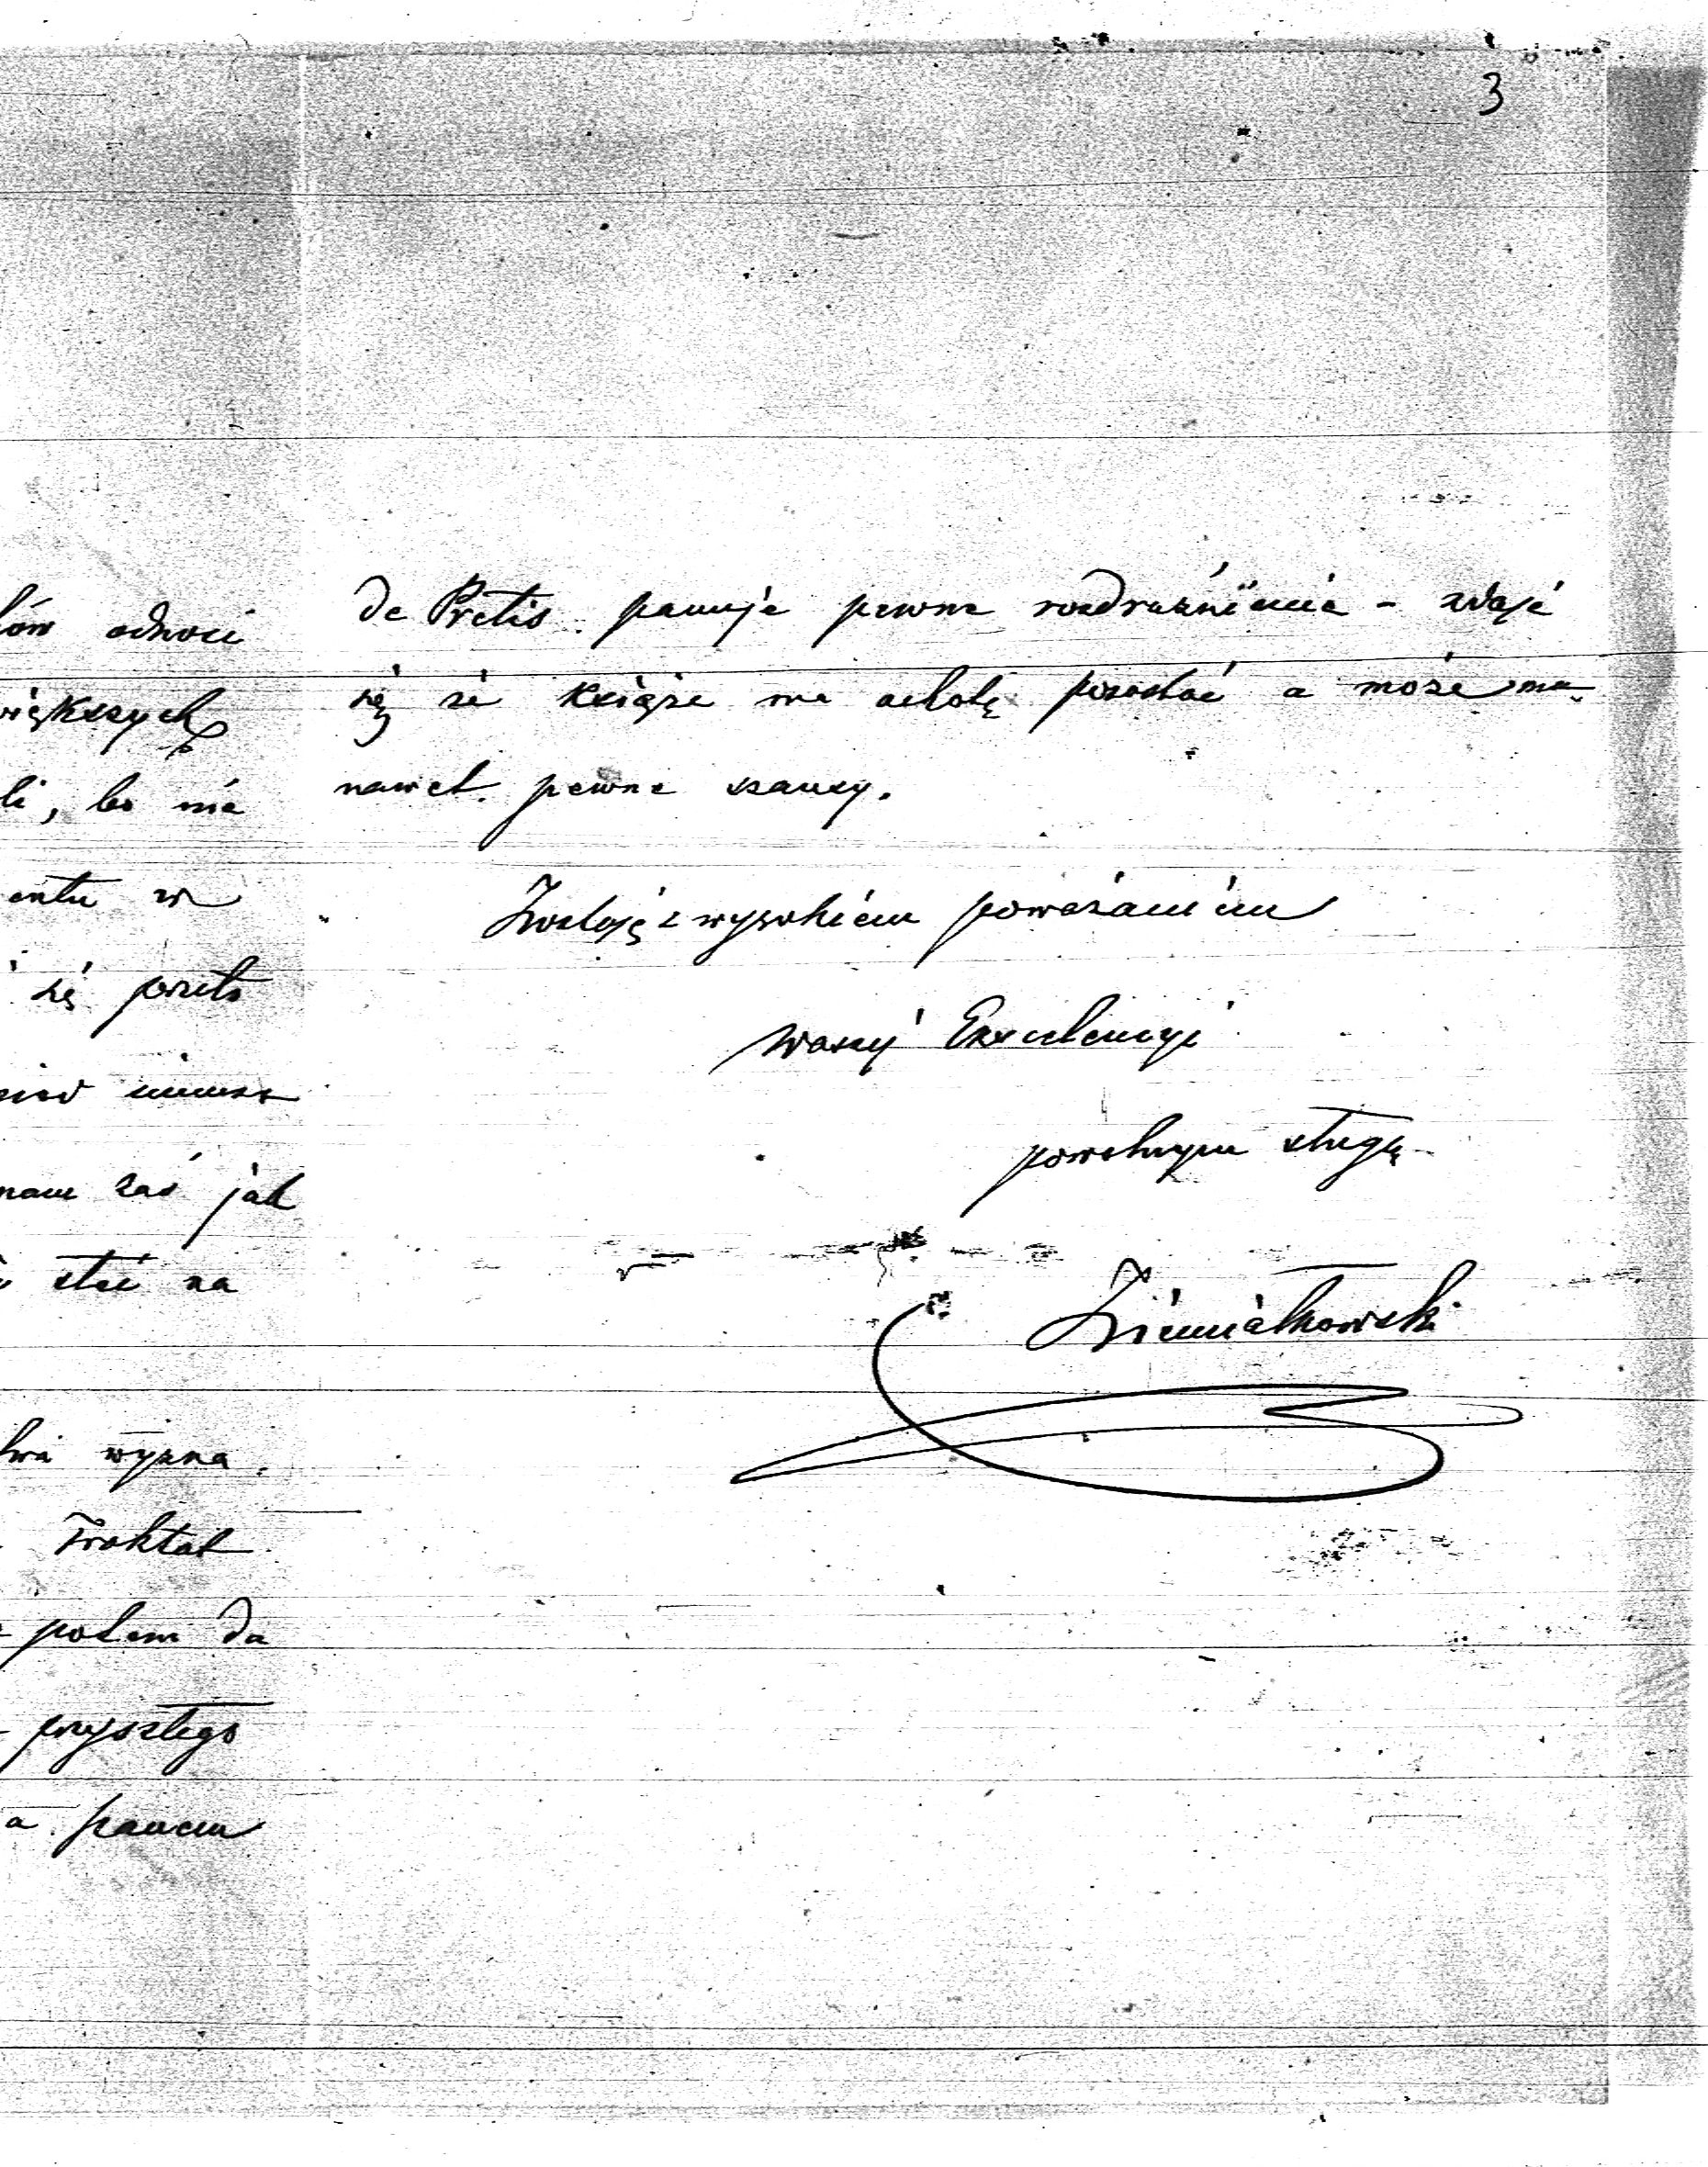 3
odnosi
większych
li, bo nie
entu w
się przeto
nam zaś jak
stać na
wyzna
Traktat
potem da
przyszłego
a panem
de Pretis panuje pewne rozdrażnienie - zdaje
się że książe ma ochotę pozostać a może ma
nawet pewne szansy.
Zostaję z wysokiém poważaniem
Waszéj Excelencyi
powolnym sługą
Ziemiałkowski